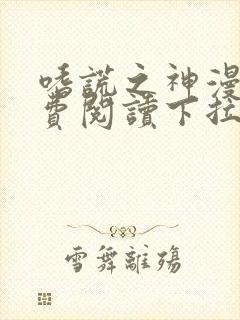 嗜謊之神漫
費閱讀下拉
雪舞離殤